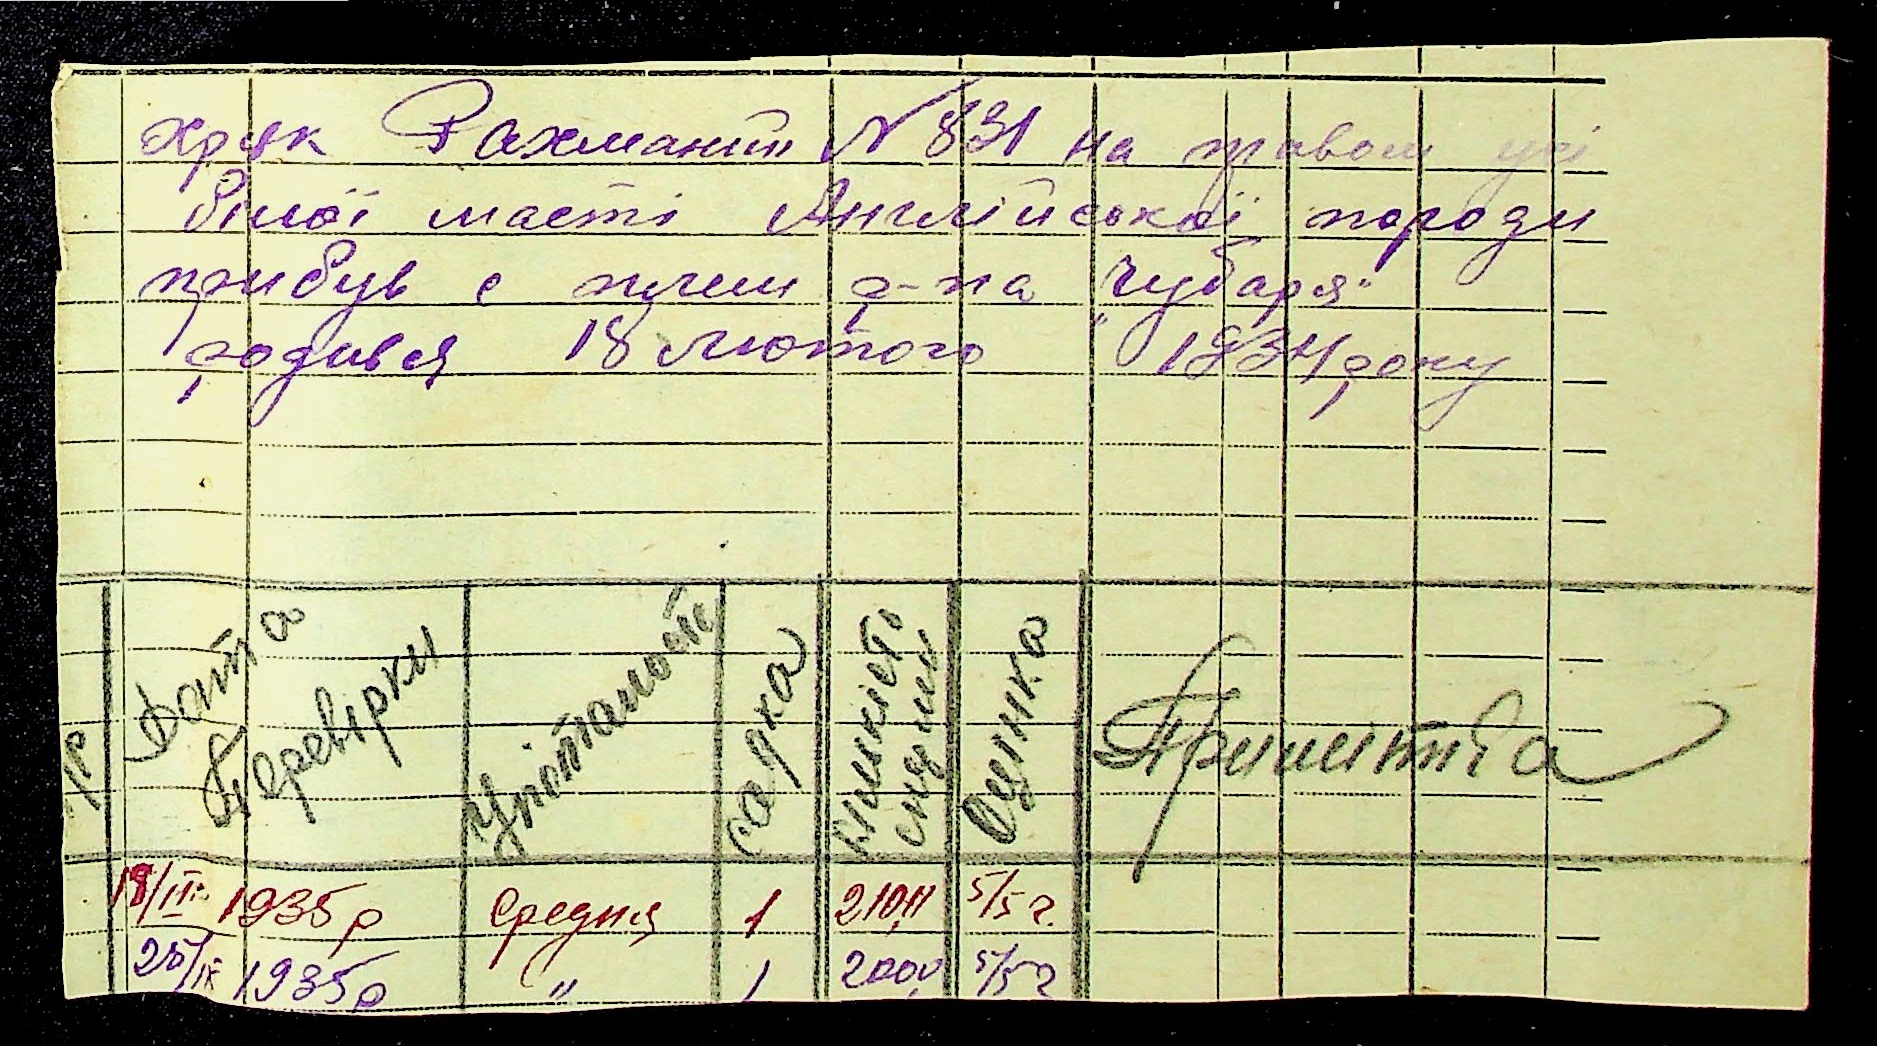 хряк Рахманій № 831 на правом усі
білої масті Англійської породи
прибув с плем р-на "Чубаря"
родився 18 Лютого 1934 року
Дата Перевірки
Упітаность
Садка
Кількість
Оцінка
Примітка
18/ІІ 1935р Средня 1 210,0 5/5 г.
25/ІХ 1935р " 1 200,0 5/5 г